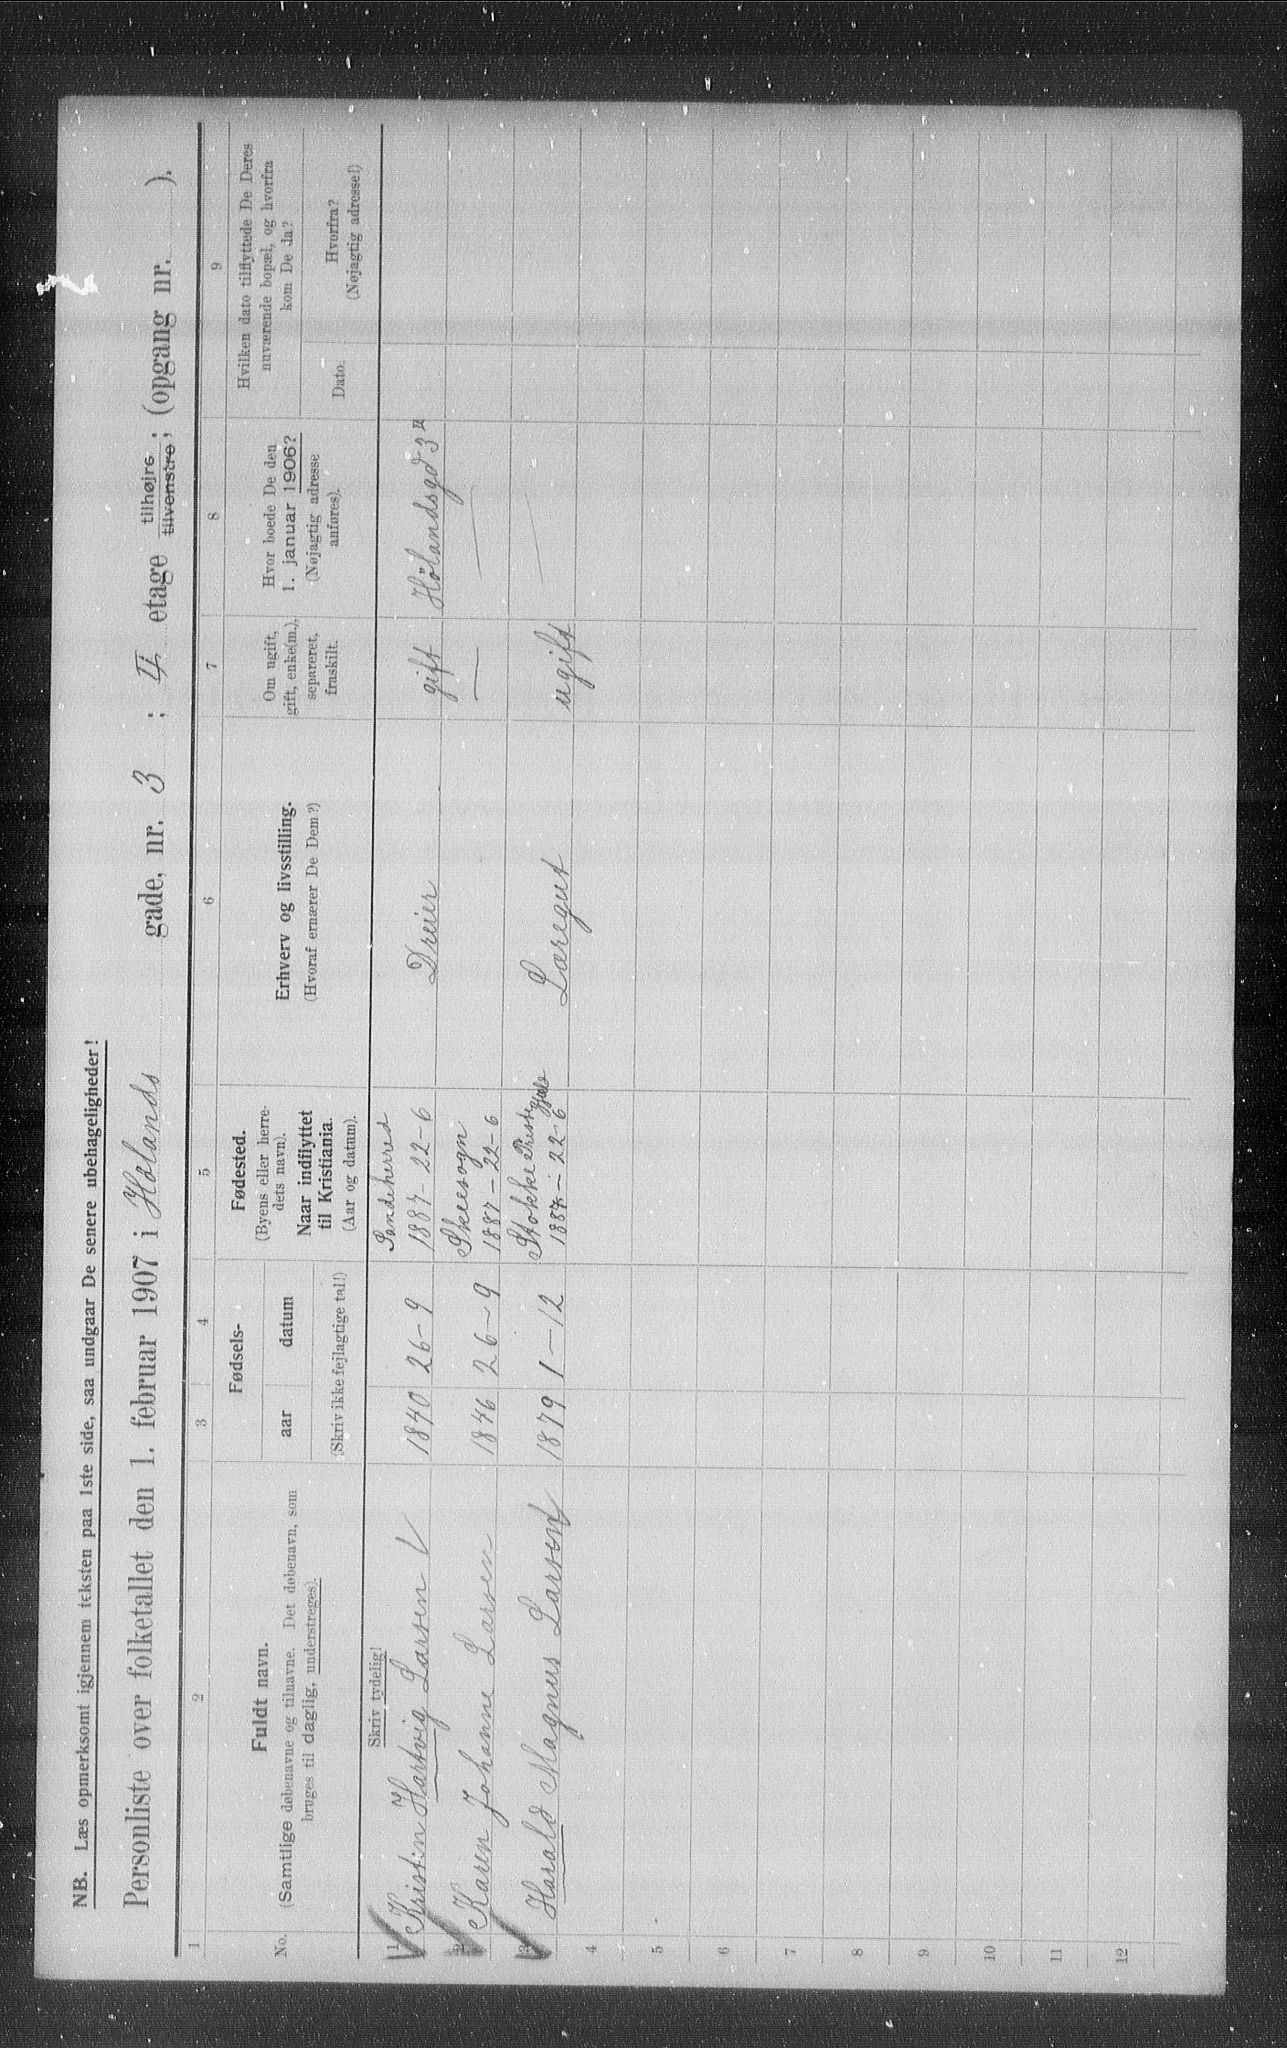 NB. Læs opmerksomt igjennem teksten paa 1ste side, saa undgaar De senere ubehageligheder!
Personliste over folketallet den 1. februar 1907 i Hølands gade, nr. 3 ; II etage tilhøjre; tilvenstre; (opgang nr. ).
1 2 3 4 5 6 7 8 9
No.
Fuldt navn.
(Samtlige døbenavne og tilnavne. Det døbenavn, som
bruges til daglig, understreges).
Fødsels-
aar datum
(Skriv ikke fejlagtige tal!)
Fødested.
(Byens eller herre-
dets navn).
Naar indflyttet
til Kristiania.
(Aar og datum).
Erhverv og livsstilling.
(Hvoraf ernærer De Dem?)
Om ugift,
gift, enke(m.),
separeret,
fraskilt.
Hvor boede De den
1. januar 1906?
(Nøjagtig adresse
anføres).
Hvilken dato tilflyttede De Deres
nuværende bopæl, og hvorfra
kom De da?
Dato.
Hvorfra?
(Nøjagtig adresse!)
Skriv tydelig!
1 Kristin Hartvig Larsen 1840 26-9 Sandeherred 1887-22-6 Dreier gift Hölandsgd 3 II
2 Karen Johanne Larsen 1846 26-9 Skeesogn 1887-22-6 — —
3 Harald Magnus Larsen 1879 1-12 Stokke Prestegjeld 1887-22-6 Læregut ugift —
4
5
6
7
8
9
10
11
12